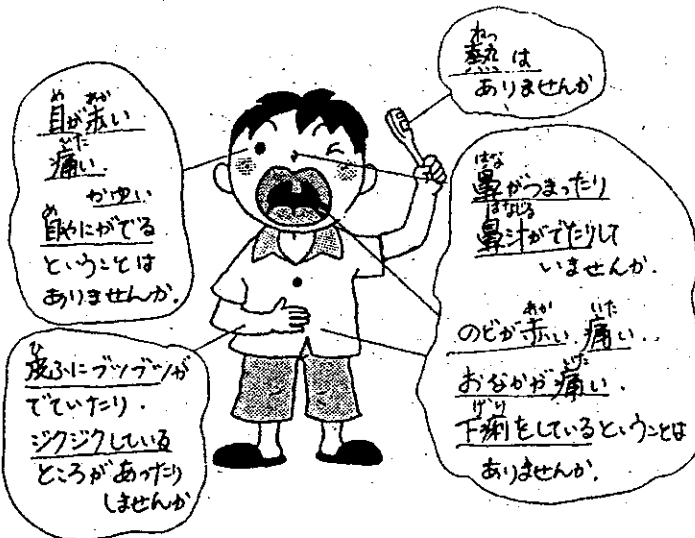 目が赤い
痛い.
かゆい
目やにがでる
ということは
ありませんか.
熱は
ありませんか
鼻がつまったり
鼻汁がでたりして
いませんか.
のどが赤い.痛い..
おなかが痛い.
下痢をしているということは
ありませんか.
皮ふにブツブツが
でていたり.
ジクジクしている
ところがあったり
しませんか